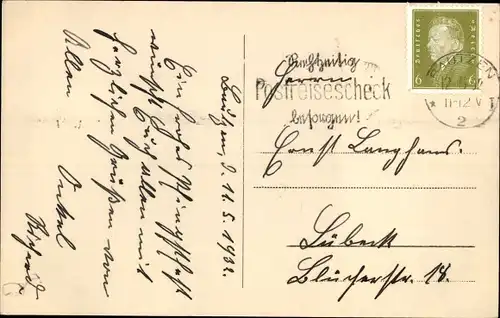 Bautzen, d. 11.5.1932.
Ein frohes Pfingstfest
wünscht Euch allen mit
herzlichen Grüßen von
Allen Onkel
Richard
Rechtzeitig
Postreisescheck
besorgen!
DEUTSCHES REICH
6 6
BAUTZEN
11-12 V
2
Herrn
Ernst Langhans.
Lübeck
Blücherstr. 18.